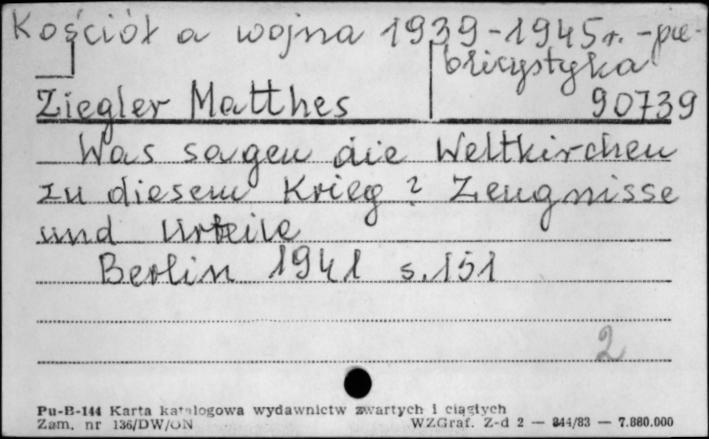 Kościół a wojna 1939-1945r. - pu-
blicystyka
Ziegler Matthes 90739
Was sagen die Weltkirchen
zu diesem Krieg? Zeugnisse
und Urteile
Berlin 1941 s. 151
2
Pu-B-144 Karta katalogowa wydawnictw zwartych i ciągłych
Zam. nr 136/DW/ON WZGraf. Z-d 2 — 344/83 — 7.880.000